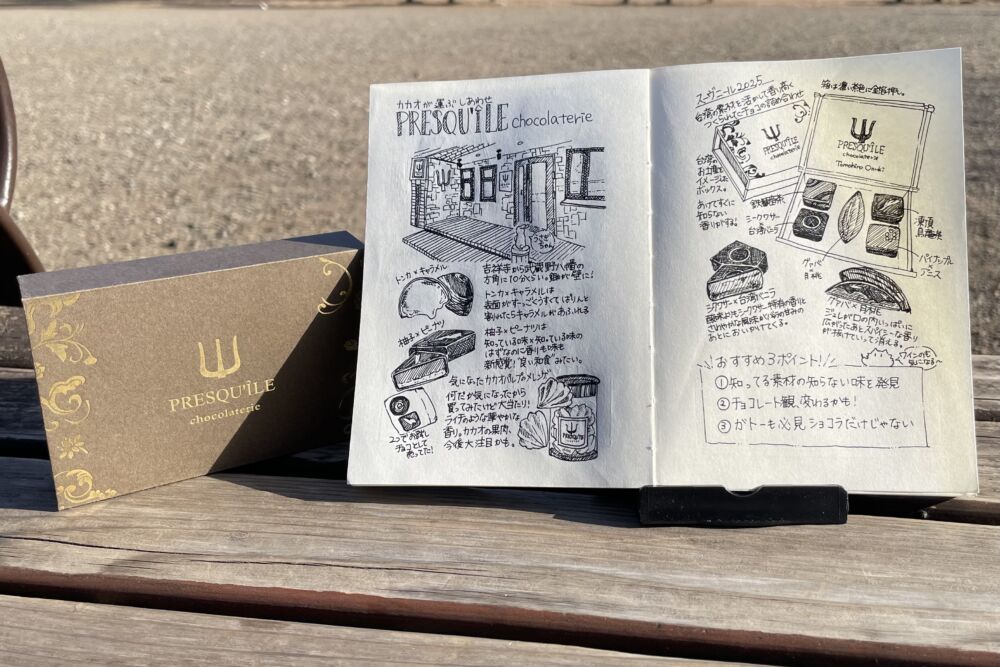 PRESQU'ÎLE
chocolaterie
カカオが運ぶしあわせ
PRESQU'ÎLE chocolaterie
吉祥寺から武蔵野八幡の
方角に10分くらい。麺が壁に!
トンカ×キャラメル
トンカ×キャラメルは
表面がすーっごくうすくてぱりんと
割れたらキャラメルがあふれる
柚子×ピーナツ
柚子×ピーナツは
知っている味×知っている味の
はずなのに香りも味も
新感覚!"良い和食"みたい。
気になったカカオパルプのメレンゲ
何だか気になったから
買ってみたけど大当たり!
ライチのような華やかな
香り。カカオの果肉、
今後大注目かも。
2つでお試し
チョコとして
売ってた!
PRESQU'ÎLE
スーヴニール2025
台湾の素材を活かして香り高く
つくられたチョコの詰め合わせ
箱は濃い茶色に金箔押し。
PRESQU'ÎLE
chocolaterie
PRESQU'ÎLE
chocolaterie
台湾
お土産を
イメージした
ボックス。
あけてすぐに
知らない
香りがする!
鉄観音茶
シークワサー
台湾バニラ
凍頂
烏龍茶
パイナップル
アニス
グァバ
月桃
シークワサー×台湾バニラ
酸味よりもシークワサー特有の香りと
さわやかな風味がバニラの甘みの
あとにおいかけてくる。
グァバ×月桃
ジュレが口の中いっぱいに
広がったあとスパイシーな香り
が抜けていって消える。
ワインのも
気になる〜
おすすめ3ポイント!
①知ってる素材の知らない味を発見
②チョコレート観、変わるかも!
③ガトーも必見 ショコラだけじゃない